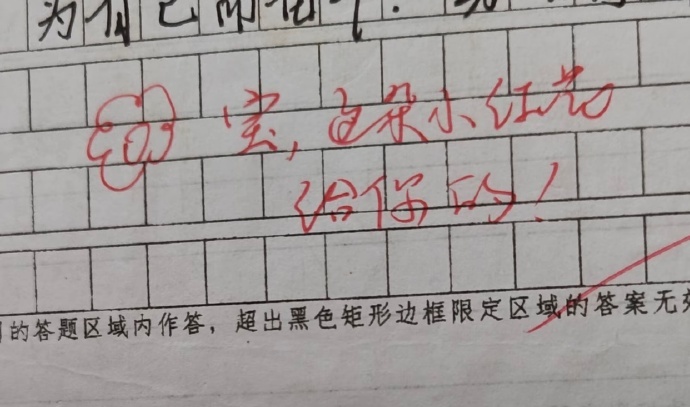 为自己
宝,这朵小红花
给你的!
的答题区域内作答，超出黑色矩形边框限定区域的答案无效